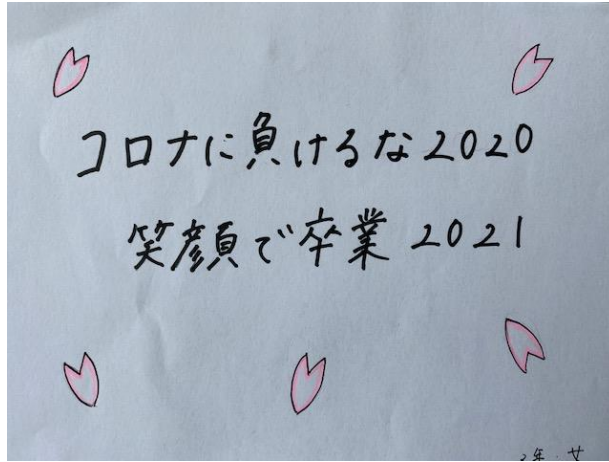 コロナに負けるな2020
笑顔で卒業 2021